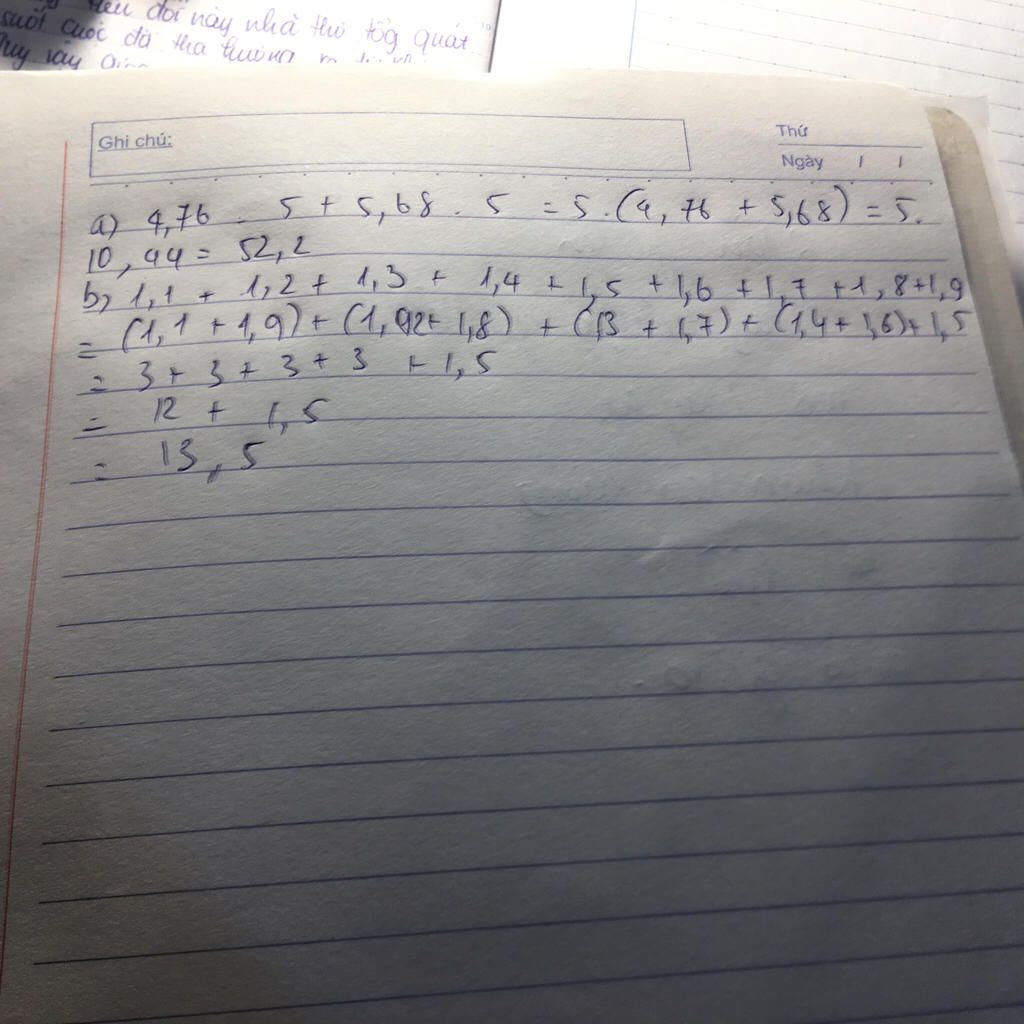 đời này nhà thơ tổg quát
suốt cuộc đã tha thường
Tuy vậy
Ghi chú:
Thứ
Ngày / /
a) 4,76 . 5 + 5,68 . 5 = 5 . (4,76 + 5,68) = 5.
10,44 = 52,2
b) 1,1 + 1,2 + 1,3 + 1,4 + 1,5 + 1,6 + 1,7 + 1,8 + 1,9
= (1,1 + 1,9) + (1,2 + 1,8) + (1,3 + 1,7) + (1,4 + 1,6) + 1,5
= 3 + 3 + 3 + 3 + 1,5
= 12 + 1,5
= 13,5